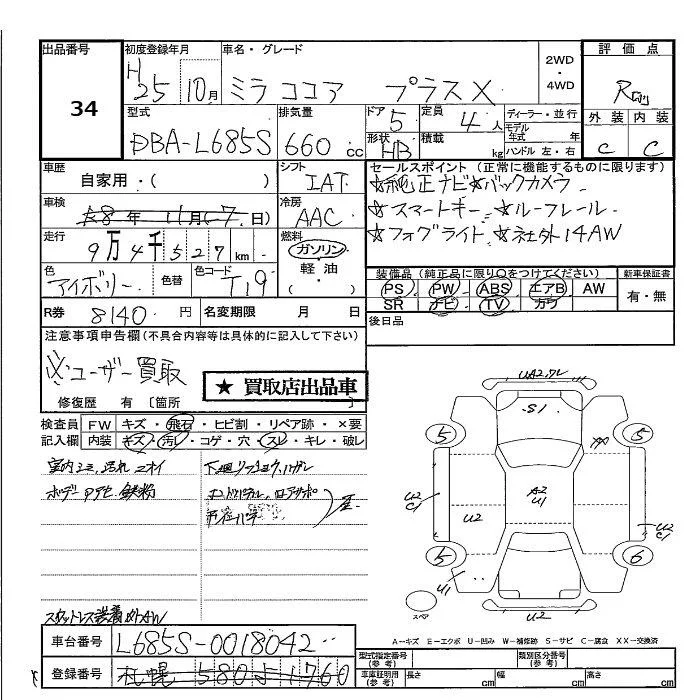 出品番号 初度登録年月 車名・グレード 2WD・4WD 評価点
34 H25 10月 ミラココア プラスX R
型式 排気量 ドア 定員 ディーラー・並行 外装 内装
DBA-L685S 660cc 5 4人 モデル年式 年 C C
形状 HB 積載 kg ハンドル 左・右
車歴 シフト セールスポイント (正常に機能するものに限ります)
自家用・( ) IAT ☆純正ナビ☆バックカメラ
車検 冷房 ☆スマートキー ☆ルーフレール
8年11月(7日) AAC ☆フォグライト ☆社外14AW
走行 燃料
9万4千527km ガソリン・軽油 ( )
装備品 (純正品に限り○をつけてください) 新車保証書
色 色替 色コード PS PW ABS エアB AW 有・無
アイボリー T19 SR ナビ TV カワ
R券 8140円 名変期限 月 日 後日品
注意事項申告欄 (不具合内容等は具体的に記入して下さい)
※ユーザー買取
★ 買取店出品車
修復歴 有 [箇所 ]
検査員記入欄 FW キズ・飛石・ヒビ割・リペア跡・×要
内装 キズ・汚レ・コゲ・穴・スレ・キレ・破レ
室内シミ、汚れ ニオイ
ボデー 鉄粉
スタッドレス装着 社外AW
UA2
S1
5 5
A2
U1
U2
U2
C1
U2
C1
5 6
U1
スペア
U2
A-キズ E-エクボ U-凹み W-補修跡 S-サビ C-腐食 XX-交換済
車台番号 L685S-0018042
型式指定番号 (参考) 類別区分番号 (参考)
登録番号 札幌 580 1760
車庫証明用 (参考) 長さ cm 幅 cm 高さ cm